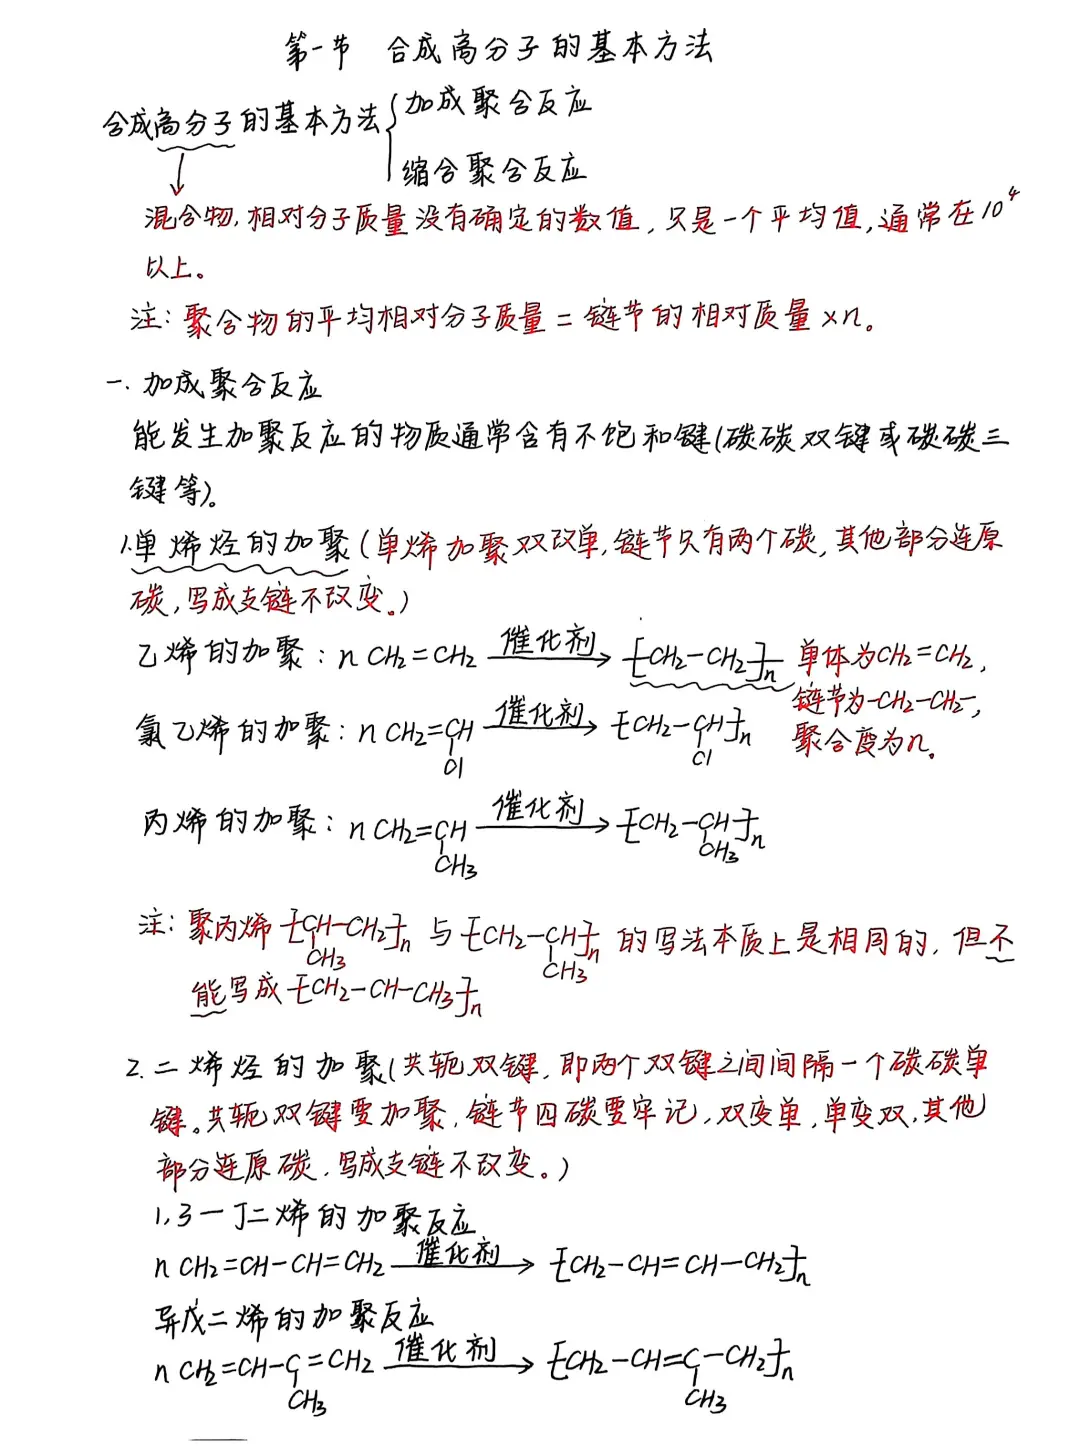 第一节 合成高分子的基本方法
合成高分子的基本方法{加成聚合反应
缩合聚合反应
混合物,相对分子质量没有确定的数值,只是一个平均值,通常在10⁴
以上。
注:聚合物的平均相对分子质量=链节的相对质量×n。
一.加成聚合反应
能发生加聚反应的物质通常含有不饱和键(碳碳双键或碳碳三
键等)。
1.单烯烃的加聚(单烯加聚双改单,链节只有两个碳,其他部分连原
碳,写成支链不改变。)
乙烯的加聚:nCH₂=CH₂ 催化剂→ -[CH₂-CH₂]-n 单体为CH₂=CH₂,
链节为-CH₂-CH₂-,
氯乙烯的加聚:nCH₂=CH 催化剂→ -[CH₂-CH]-n 聚合度为n。
Cl Cl
丙烯的加聚:nCH₂=CH 催化剂→ -[CH₂-CH]-n
CH₃ CH₃
注:聚丙烯-[CH-CH₂]-n与-[CH₂-CH]-n的写法本质上是相同的,但不
CH₃ CH₃
能写成-[CH₂-CH-CH₃]-n
2.二烯烃的加聚(共轭双键,即两个双键之间间隔一个碳碳单
键。共轭双键要加聚,链节四碳要牢记,双变单,单变双,其他
部分连原碳,写成支链不改变。)
1,3-丁二烯的加聚反应
nCH₂=CH-CH=CH₂ 催化剂→ -[CH₂-CH=CH-CH₂]-n
异戊二烯的加聚反应
nCH₂=CH-C=CH₂ 催化剂→ -[CH₂-CH=C-CH₂]-n
CH₃ CH₃